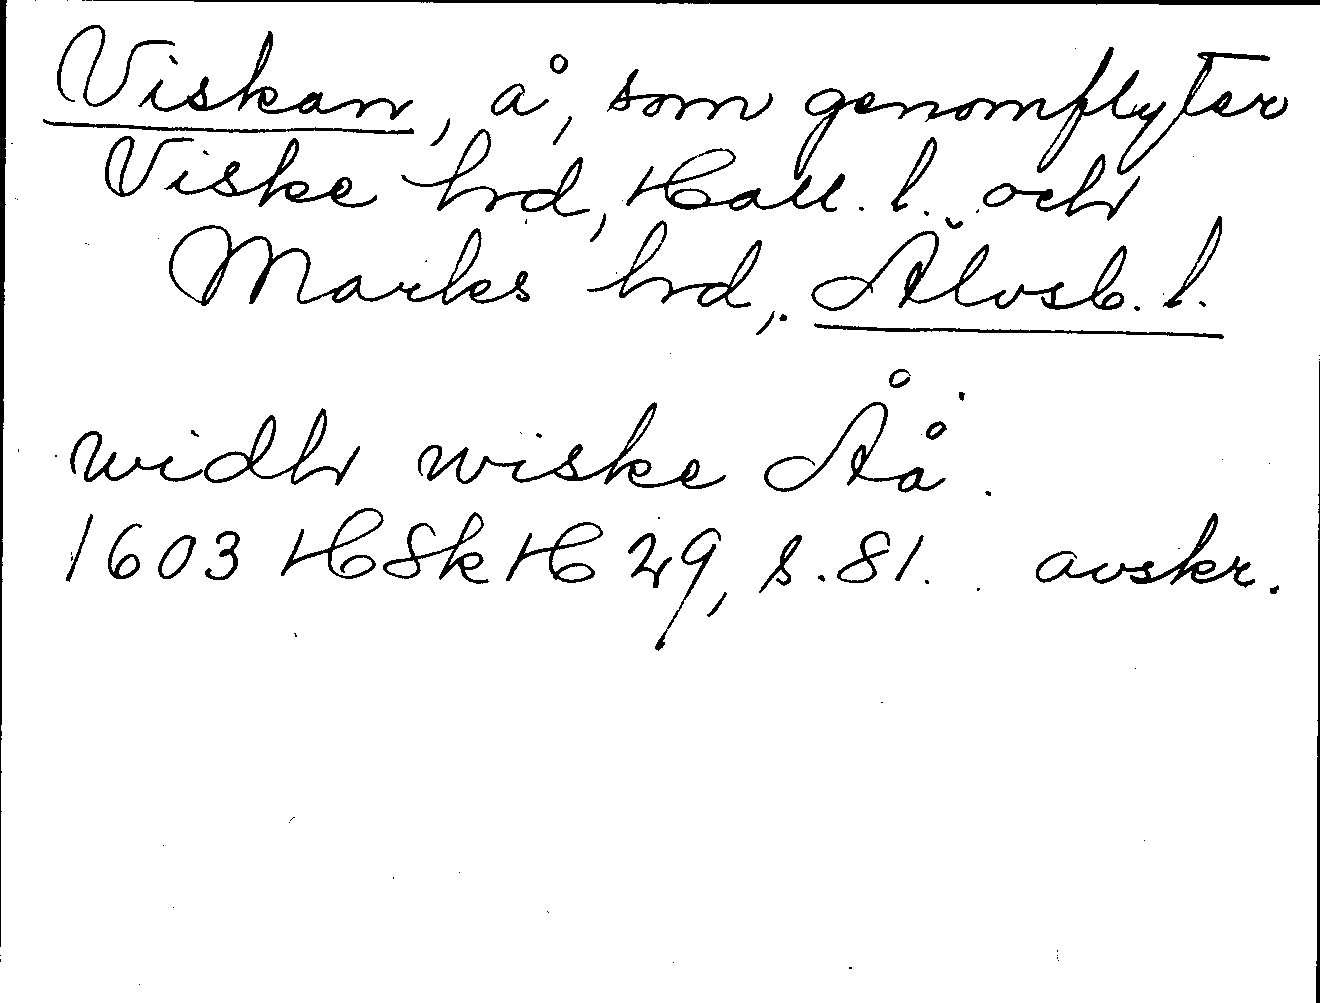 Viskan, å, som genomflyter
Viske hrd, Hall. l. och
Marks hrd, Älvsb. l.
widh wiske Åå.
1603 HSkH 29, s. 81. avskr.